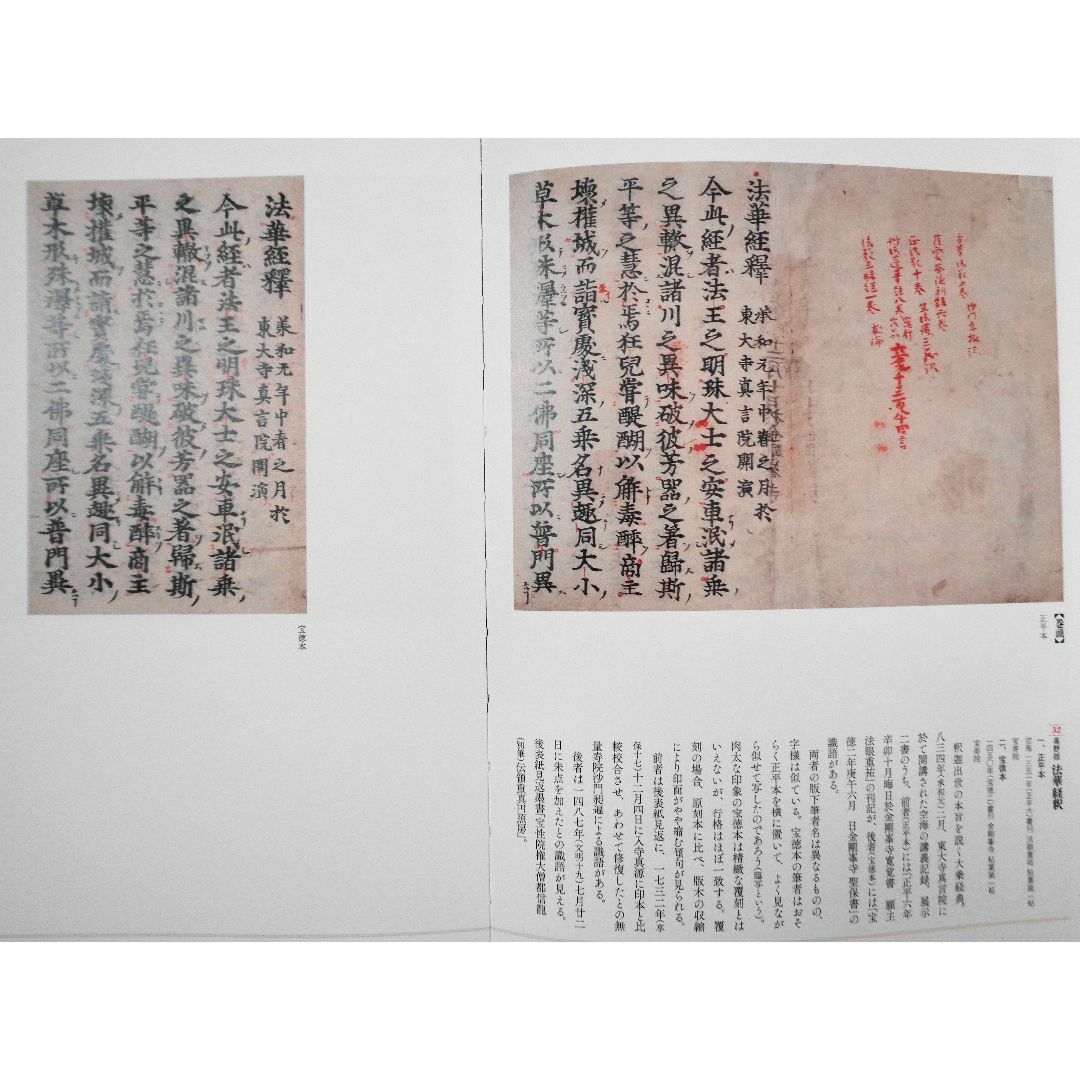 法華経釋 承和元年中春之月於
東大寺真言院開演
今此経者法王之明珠大士之安車泯諸乗
之異轍混諸川之異味破彼芳器之著歸斯
平等之慧於焉狂兒嘗醍醐以解毒酔商主
壊權城而詣寶處淺深五乗名異趣同大小
草木形殊渥等所以二佛同座所以普門異
【巻頭】
正平本
32 高野版 法華経釈
一、正平本
空海 一三五一年(正平六)書刊 法眼重祐 粘葉装 一帖
宝寿院
二、宝徳本
一四五〇年(宝徳二)書刊 金剛峯寺 粘葉装 一帖
宝寿院
釈迦出世の本旨を説く大乗経典。
八三四年(承和元)二月、東大寺真言院に
於て開講された空海の講義記録。展示
二書のうち、前者(正平本)には「正平六年
辛卯十月晦日於金剛峯寺寛覚書 願主
法眼重祐」の刊記が、後者(宝徳本)には「宝
徳二年庚午六月 日金剛峯寺 聖保書」の
識語がある。
両者の版下筆者名は異なるものの、
字様は似ている。宝徳本の筆者はおそ
らく正平本を横に置いて、よく見なが
ら似せて写したのであろう(臨写という)。
肉太な印象の宝徳本は精緻な覆刻とは
いえないが、行格はほぼ一致する。覆
刻の場合、原刻本に比べ、版木の収縮
により印面がやや縮む傾向が見られる。
前者は後表紙見返に、一七三二年(享
保十七)十二月四日に入寺真源に印本と比
較校合させ、あわせて修復したとの無
量寿院沙門昶遍による識語がある。
後者は一四八七年(文明十九)七月廿二
日に朱点を加えたとの識語が見える。
後表紙見返墨書「宝性院権大僧都信龍
(別筆)伝領重真円照房」。
法華経釋 承和元年中春之月於
東大寺真言院開演
今此経者法王之明珠大士之安車泯諸乗
之異轍混諸川之異味破彼芳器之著歸斯
平等之慧於焉狂兒嘗醍醐以解毒酔商主
壊權城而詣寶處淺深五乗名異趣同大小
草木形殊渥等所以二佛同座所以普門異
宝徳本